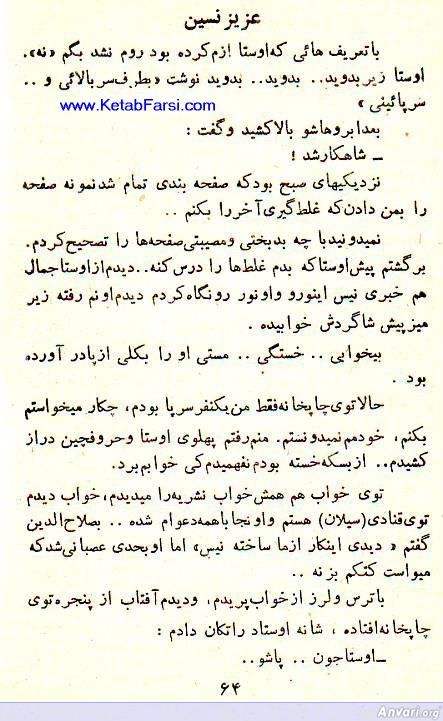 عزیز نسین
با تعریف هائی که اوستا ازم کرده بود روم نشد بگم «نه».
اوستا زیر بدوید.. بدوید.. بدوید نوشت «بطرف سر بالائی و ..
سر پائینی»
www.KetabFarsi.com
بعد ابروهاشو بالا کشید و گفت :
ـ شاهکار شد !
نزدیکیهای صبح بود که صفحه بندی تمام شد نمونه صفحه
را بمن دادن که غلط گیری آخر را بکنم ..
نمیدونید با چه بدبختی و مصیبتی صفحه‌ها را تصحیح کردم.
برگشتم پیش اوستا که بدم غلطها را درس کنه.. دیدم از اوستا جمال
هم خبری نیس اینور و اونور رو نگاه کردم دیدم اونم رفته زیر
میز پیش شاگردش خوابیده .
بیخوابی .. خستگی .. مستی او را بکلی از پا در آورده
بود .
حالا توی چاپخانه فقط من یکنفر سر پا بودم، چکار میخواستم
بکنم، خودمم نمیدونستم. منم رفتم پهلوی اوستا و حروفچین دراز
کشیدم.. از بسکه خسته بودم نفهمیدم کی خوابم برد.
توی خواب هم همش خواب نشریه را میدیدم، خواب دیدم
توی قنادی (سیلان) هستم و اونجا با همه دعوام شده .. بصلاح الدین
گفتم « دیدی اینکار از ما ساخته نیس» اما او بحدی عصبانی شد که
میواست کتکم بزنه ..
با ترس و لرز از خواب پریدم، و دیدم آفتاب از پنجره توی
چاپخانه افتاده ، شانه اوستا را تکان دادم :
ـ اوستا جون .. پاشو..
۶۴
Anvari.org